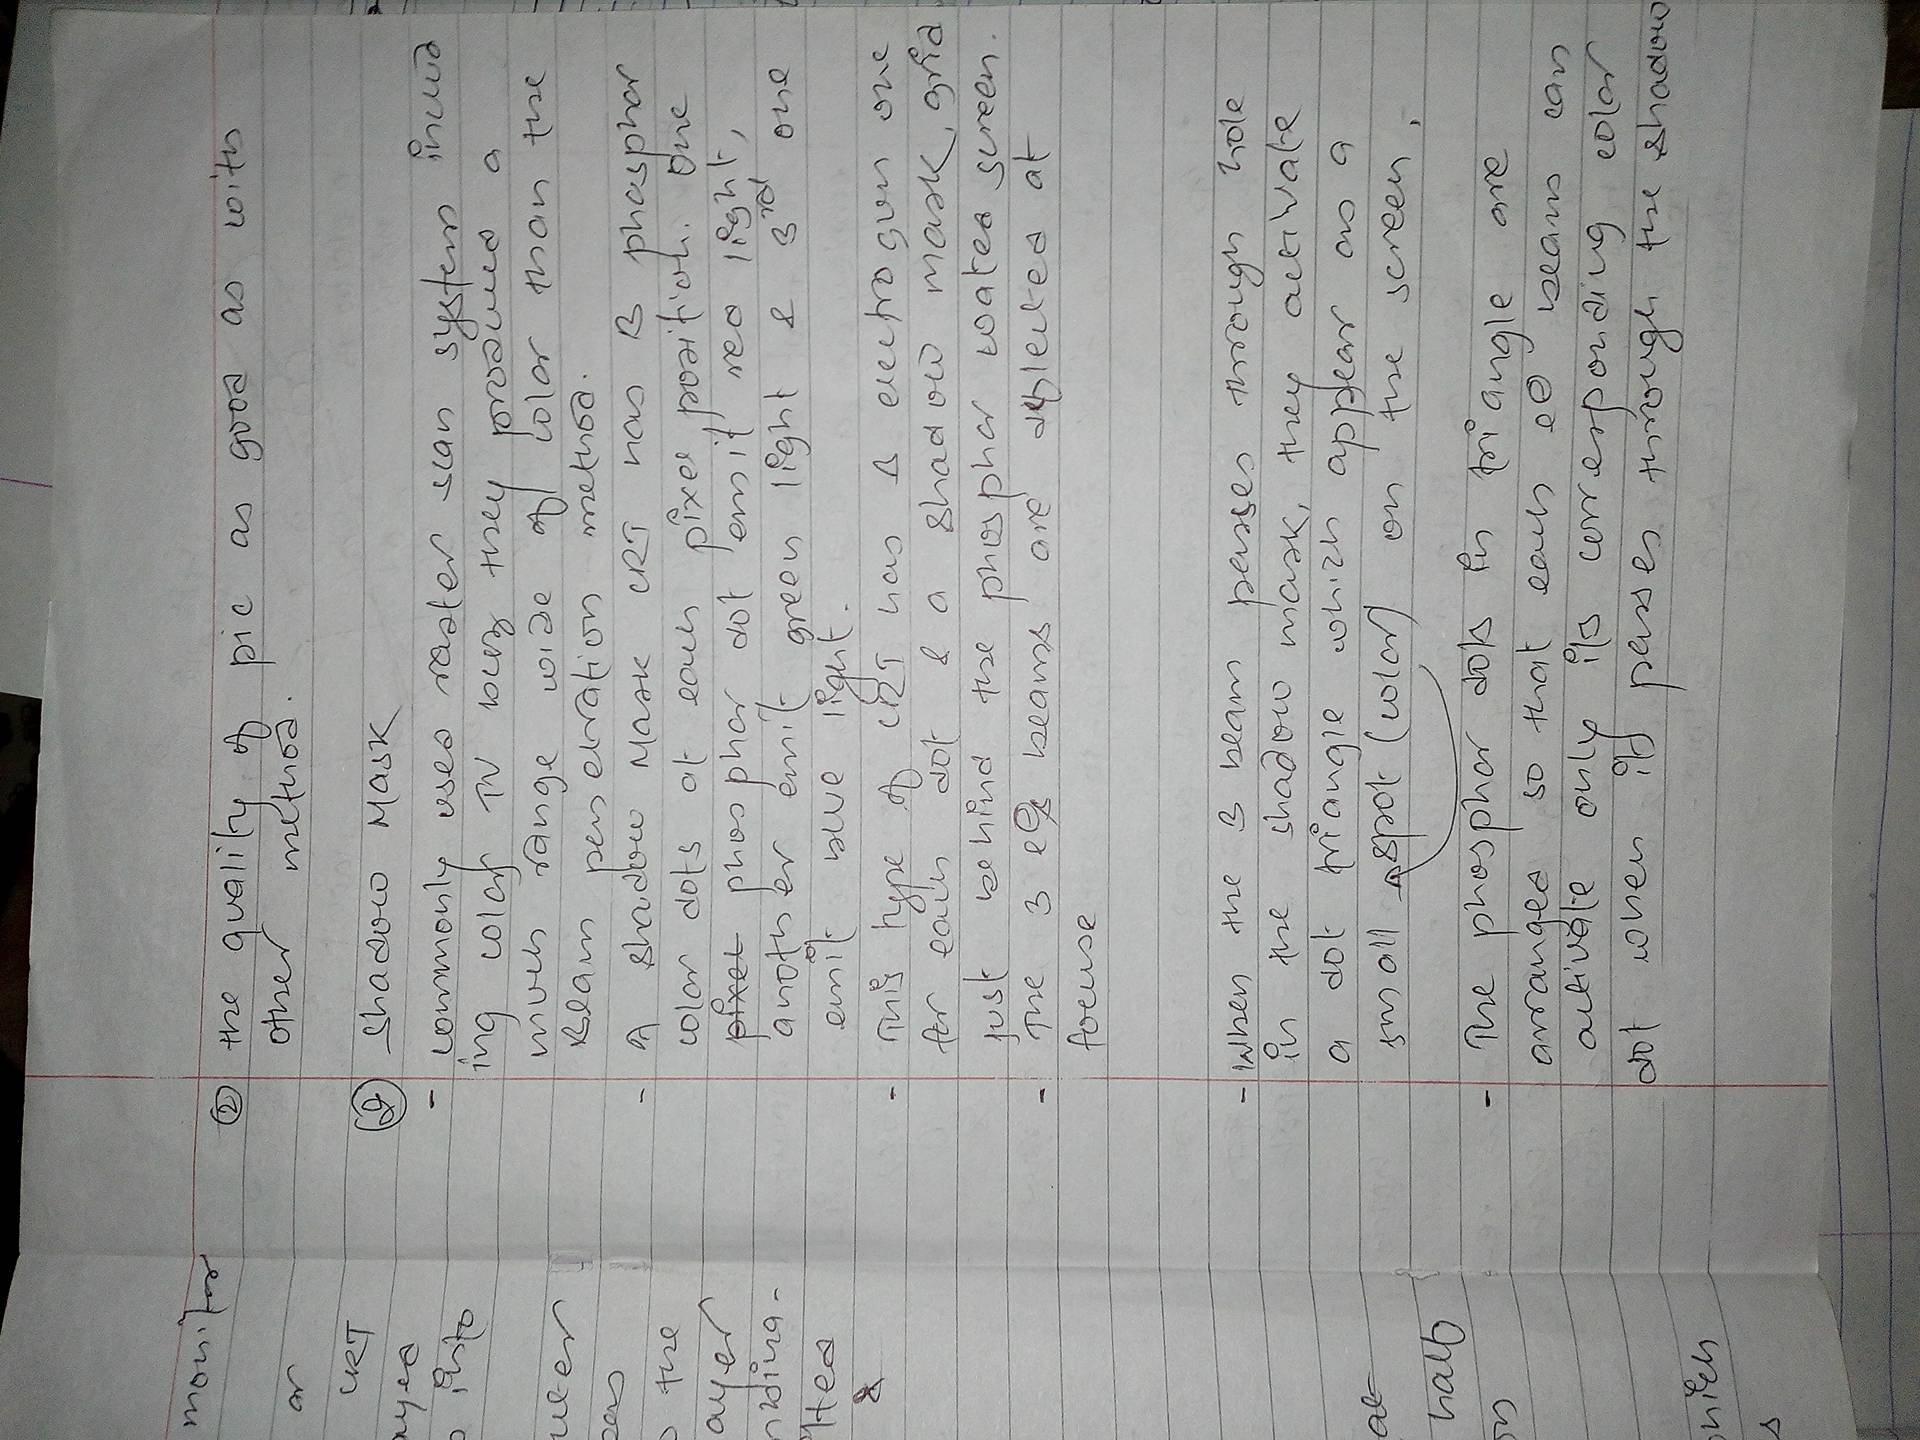 ② the quality of pic as good as with
other method.
② Shadow Mask
- commonly used raster scan systems includ
ing color TV bcoz they produced a
much range wide of color than the
Beam penetration method.
- A shadow Mask CRT has 3 phosphor
color dots at each pixel position. One
pixel phosphor dot emit red light,
another emit green light & 3rd one
emit blue light.
- This type of CRT has 3 electrogun one
for each dot & a shadow mask grid
just behind the phosphor coated screen.
- The 3 beams are deflected at
focuse
- When the 3 beam passes through hole
in the shadow mask, they activate
a dot triangle which appear as a
small spot (color) on the screen.
- The phosphor dots in triangle are
arranged so that each e⊖ beams can
activate only its corresponding color
dot when it passes through the shadow
monitor
or
CRT
into
the
ayer
&
half